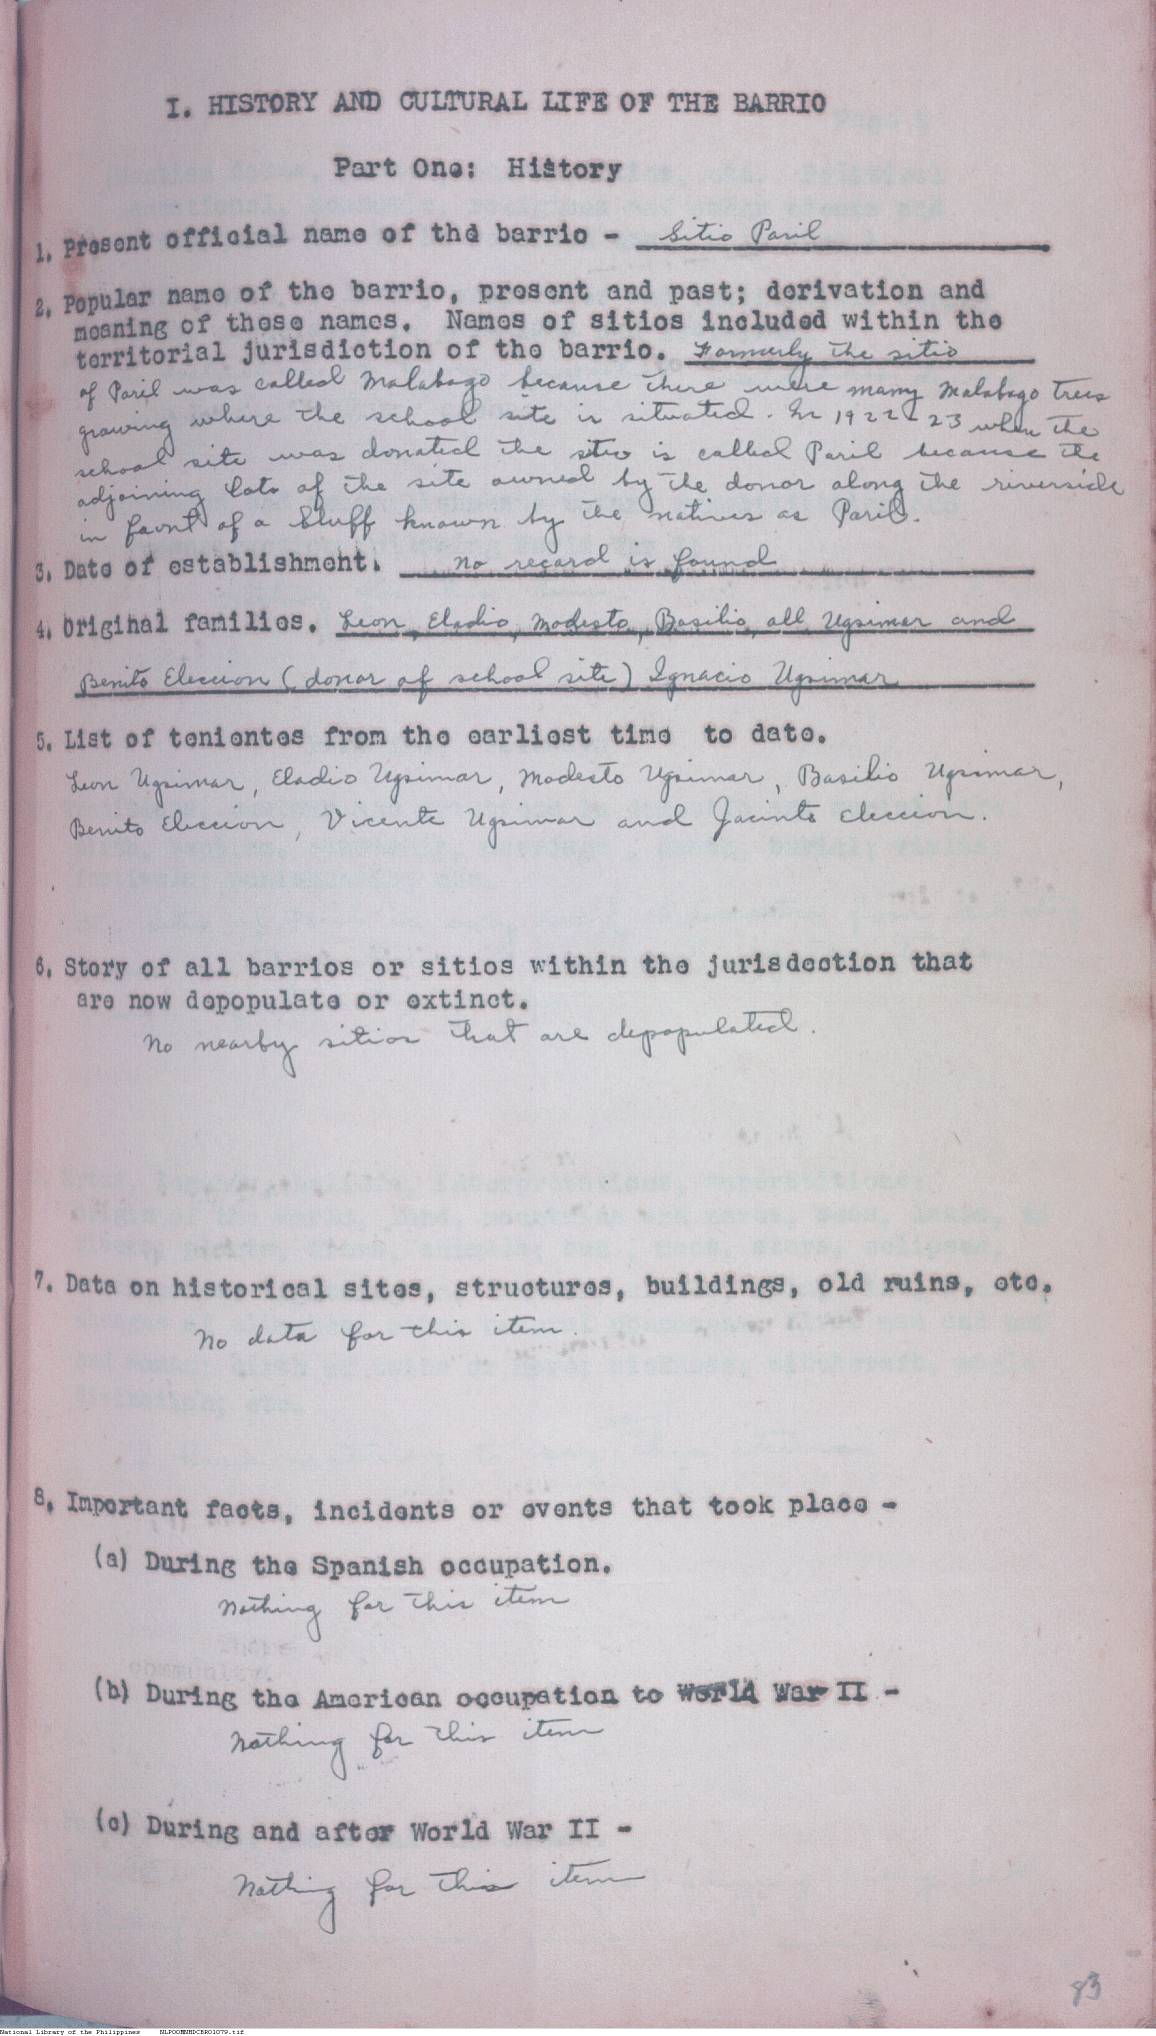 I. HISTORY AND CULTURAL LIFE OF THE BARRIO
Part One: History
1. Present official name of the barrio - Sitio Paril
2. Popular name of the barrio, present and past; derivation and
meaning of these names. Names of sitios included within the
territorial jurisdiction of the barrio. Formerly the sitio
of Paril was called Malabago because there were many Malabago trees
growing where the school site is situated. In 1922-23 when the
school site was donated the sitio is called Paril because the
adjoining lots of the site owned by the donor along the riverside
in front of a bluff known by the natives as Paril.
3. Date of establishment. No record is found
4. Original families. Leon, Eladio, Modesto, Basilio, all Ugsimar and
Benito Eleccion (donor of school site) Ignacio Ugsimar
5. List of tenientes from the earliest time to date.
Leon Ugsimar, Eladio Ugsimar, Modesto Ugsimar, Basilio Ugsimar,
Benito Eleccion, Vicente Ugsimar and Jacinto Eleccion.
6. Story of all barrios or sitios within the jurisdection that
are now depopulate or extinct.
No nearby sitios that are depopulated.
7. Data on historical sites, structures, buildings, old ruins, etc.
No data for this item.
8. Important facts, incidents or events that took place -
(a) During the Spanish occupation.
Nothing for this item
(b) During the American occupation to World War II -
Nothing for this item
(c) During and after World War II -
Nothing for this item
83
National Library of the Philippines NLPOOMNHDCBR01079.tif